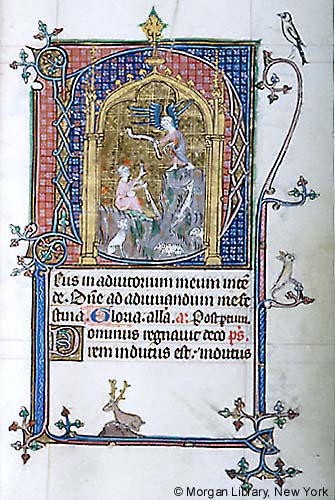 eus in adiutorium meum inten
de. Dñe ad adiuuandum me fe
stina. Gloria. alla. a. Post partum.
Dominus regnauit deco ps.
rem indutus est: indutus
© Morgan Library, New York